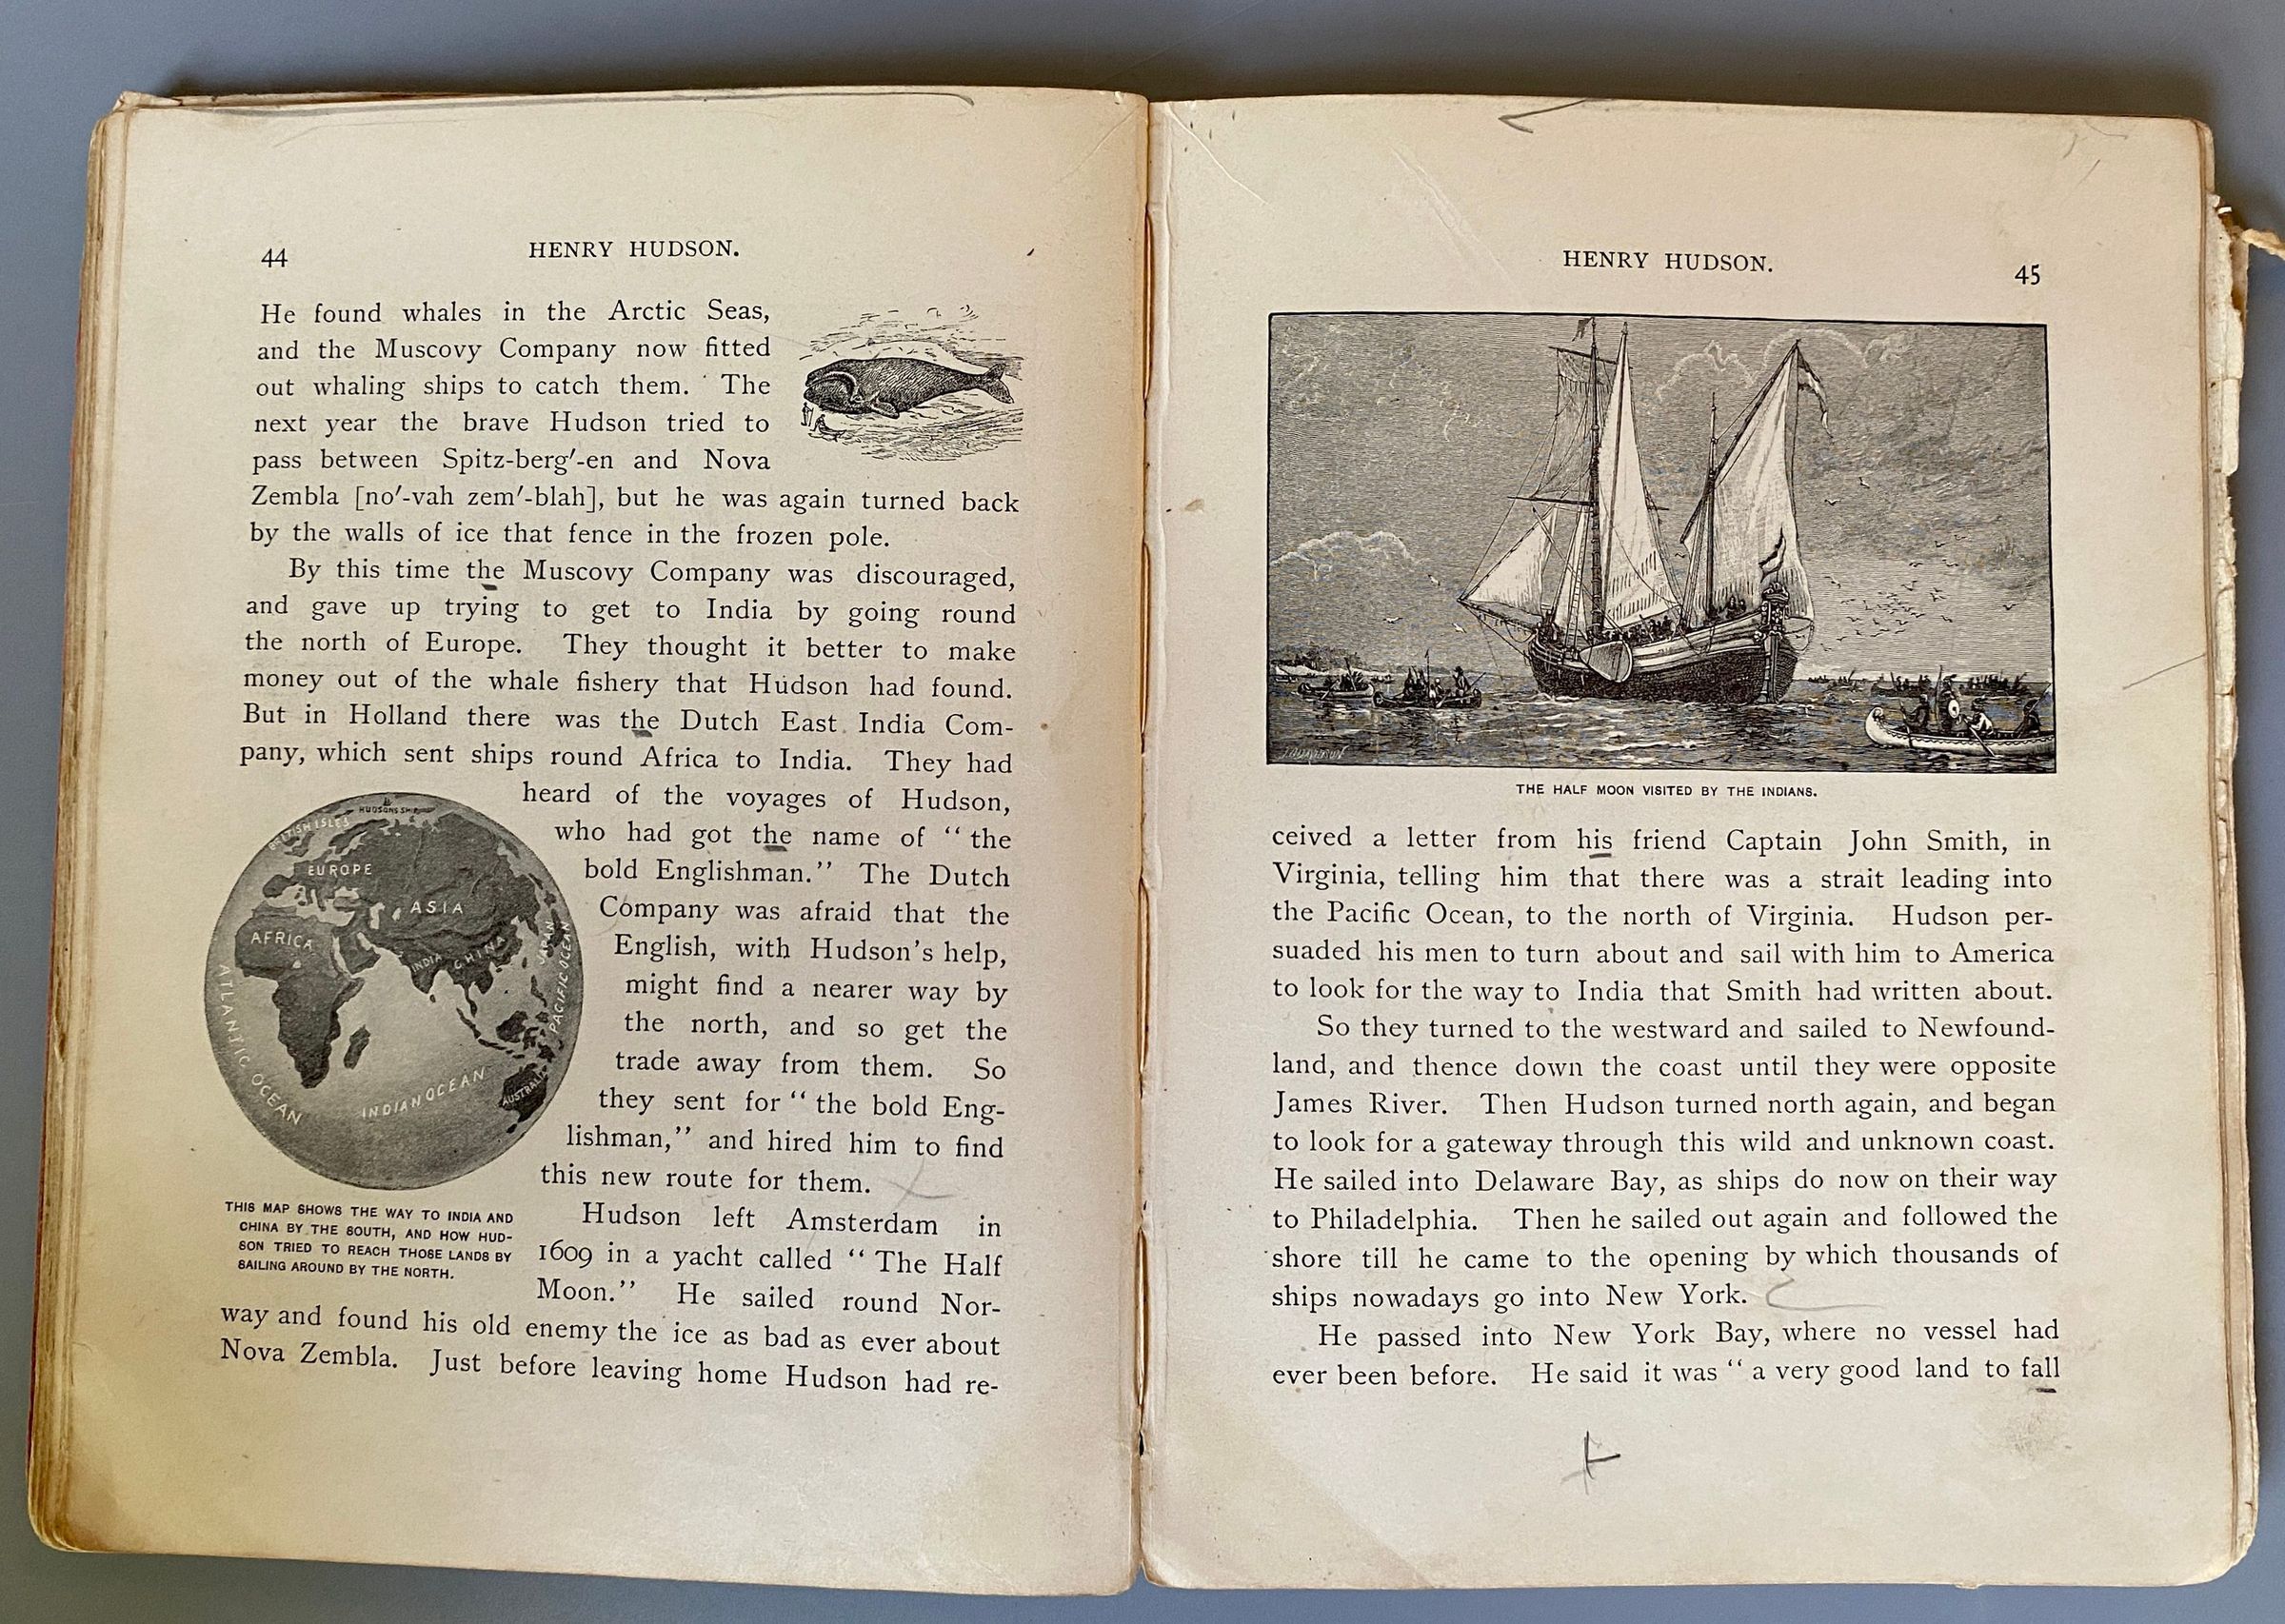 44
HENRY HUDSON.
He found whales in the Arctic Seas,
and the Muscovy Company now fitted
out whaling ships to catch them. The
next year the brave Hudson tried to
pass between Spitz-berg′-en and Nova
Zembla [no′-vah zem′-blah], but he was again turned back
by the walls of ice that fence in the frozen pole.
By this time the Muscovy Company was discouraged,
and gave up trying to get to India by going round
the north of Europe. They thought it better to make
money out of the whale fishery that Hudson had found.
But in Holland there was the Dutch East India Com-
pany, which sent ships round Africa to India. They had
heard of the voyages of Hudson,
who had got the name of “the
bold Englishman.” The Dutch
Company was afraid that the
English, with Hudson’s help,
might find a nearer way by
the north, and so get the
trade away from them. So
they sent for “the bold Eng-
lishman,” and hired him to find
this new route for them.
HUDSONS SHIP
BRITISH ISLES
EUROPE
ASIA
AFRICA
INDIA
CHINA
JAPAN
PACIFIC OCEAN
ATLANTIC OCEAN
INDIAN OCEAN
AUSTRALIA
THIS MAP SHOWS THE WAY TO INDIA AND
CHINA BY THE SOUTH, AND HOW HUD-
SON TRIED TO REACH THOSE LANDS BY
SAILING AROUND BY THE NORTH.
Hudson left Amsterdam in
1609 in a yacht called “The Half
Moon.” He sailed round Nor-
way and found his old enemy the ice as bad as ever about
Nova Zembla. Just before leaving home Hudson had re-
HENRY HUDSON.
45
THE HALF MOON VISITED BY THE INDIANS.
ceived a letter from his friend Captain John Smith, in
Virginia, telling him that there was a strait leading into
the Pacific Ocean, to the north of Virginia. Hudson per-
suaded his men to turn about and sail with him to America
to look for the way to India that Smith had written about.
So they turned to the westward and sailed to Newfound-
land, and thence down the coast until they were opposite
James River. Then Hudson turned north again, and began
to look for a gateway through this wild and unknown coast.
He sailed into Delaware Bay, as ships do now on their way
to Philadelphia. Then he sailed out again and followed the
shore till he came to the opening by which thousands of
ships nowadays go into New York.
He passed into New York Bay, where no vessel had
ever been before. He said it was “a very good land to fall